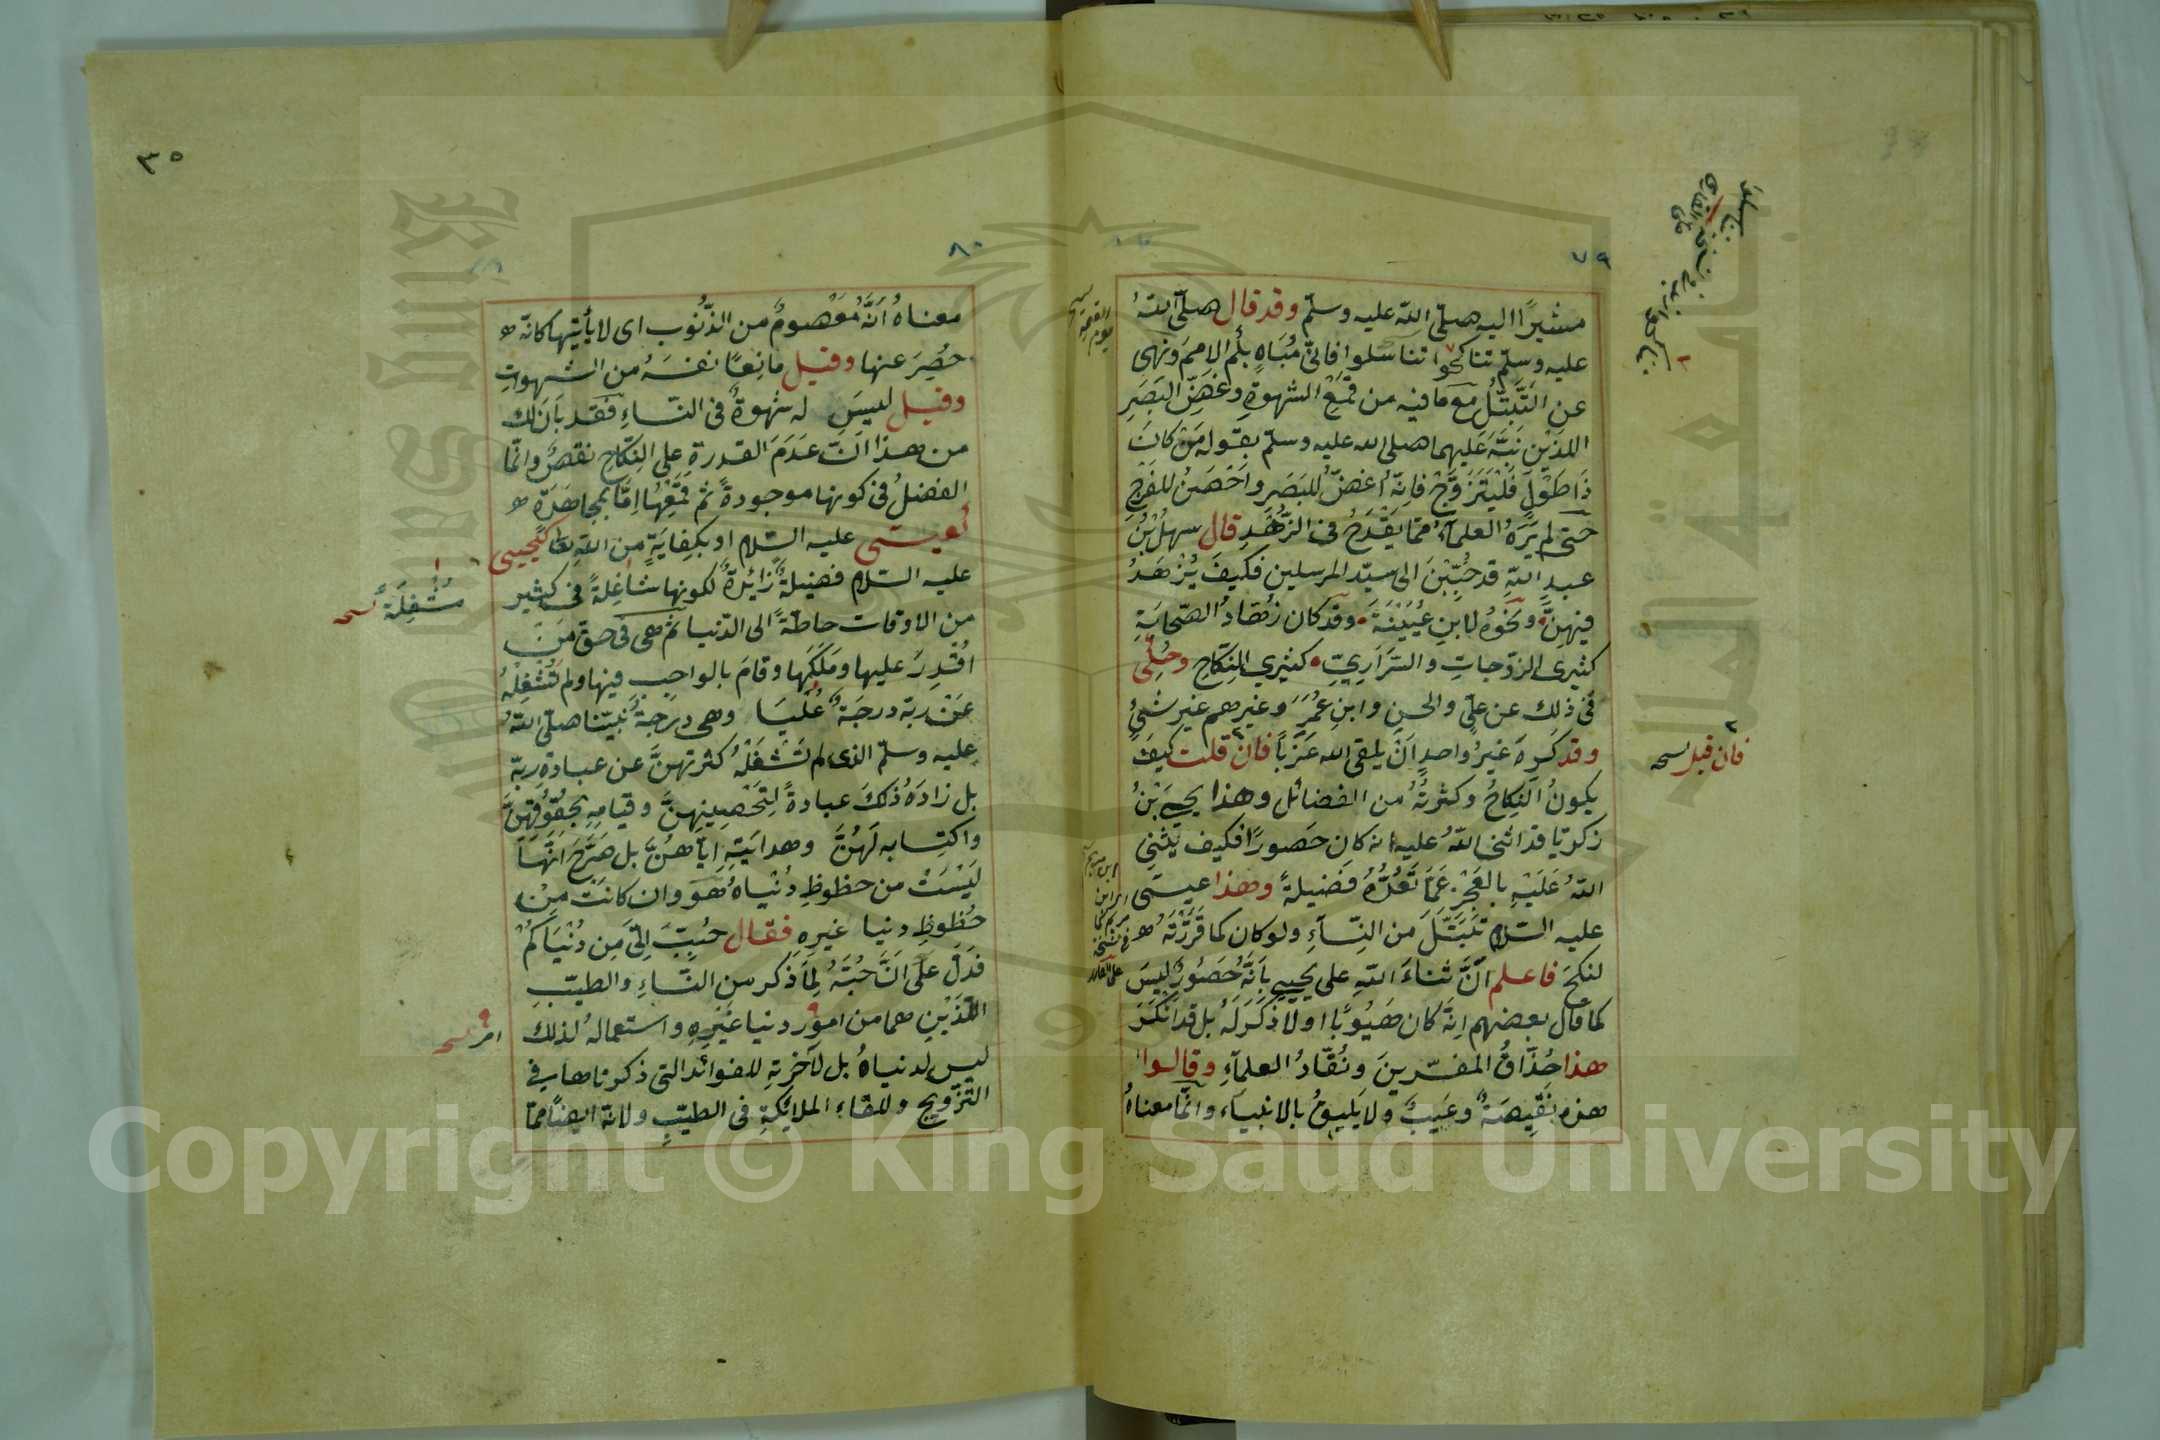 ٧٩
مشيرًا اليه صلّى الله عليه وسلّم وقد قال صلّى اللهُ
عليه وسلّم تناكحوا تناسلوا فانّي مُبَاهٍ بكُم الاممَ ونهى
عن التَّبَتُّلِ مع ما فيه من قَمْعِ الشهوةِ وغَضِّ البَصَرِ
اللذَيْنِ نَبَّهَ عليهما صلى الله عليه وسلّم بقوله مَنْ كانَ
ذَا طَوْلٍ فَلْيَتَزَوَّجْ فاِنَّهُ اَغَضُّ للبَصَرِ واَحْصَنُ للفَرْجِ
حتى لم يَرَهُ العلماءُ ممّا يَقْدَحُ في الزُّهْدِ قال سهلُ بْنُ
عبدِ اللّهِ قد حُبِّبْنَ الى سيّد المرسلين فكيفَ يُزْهَدُ
فيهنَّ ونَحْوُهُ لابنِ عُيَيْنَةَ وقد كان زُهّادُ الصّحابَةِ
كثيري الزّوجاتِ والسَّرَارِيِّ كثيري النِّكاحِ وحُكِيَ
في ذلك عن عليٍّ والحسنِ وابنِ عُمَرَ وغيرِهم غير شيءٍ
وقد كَرِهَ غيرُ واحدٍ اَنْ يلقى الله عَزَبًا فان قلت كيفَ
يكونُ النِّكاحُ وكثرتُهُ من الفضائل وهذا يحيى بْنُ
زكريّا قد اثنى اللّهُ عليه انه كان حَصورًا فكيف يُثنِي
اللّهُ عَلَيْهِ بالعَجْزِ عَمَّا تَعُدُّهُ فَضيلةً وهذا عيسَى
عليه السّلام تَبَتَّلَ من النِّساءِ ولو كان كما قَرَّرْتَهُ
لنكحَ فاعلم اَنَّ ثناءَ اللّهِ على يحيى بِاَنَّهُ حَصُورٌ ليسَ
كما قال بعضهم اِنَّهُ كان هَيُوبًا او لا ذَكَرَ لَهُ بل قد اَنْكَرَ
هذا حُذّاقُ المفسّرينَ ونُقّادُ العلماءِ وقالوا
هذه نَقِيصَةٌ وعَيبٌ ولا يَليقُ بالانبياء وانّما معناهُ
يوم القيمة
فان قيل نسخه
٣٥
٨٠
معناهُ اَنَّهُ مَعْصومٌ من الذُّنُوب اى لا يأتيها كانّه
حُصِرَ عنها وقيل مانِعًا نفسَهُ من الشهواتِ
وقيل ليسَ له شهوةٌ في النّساءِ فقد بَانَ لك
من هذا اَنّ عَدَمَ القدرةِ على النِّكاحِ نقصٌ وانّما
الفضلُ في كونها موجودةً ثم قَمْعُهَا اِمَّا بمجاهَدَةٍ
كعيسى عليه السّلام او بكِفايَةٍ من اللّهِ تعا كيحيى
عليه السّلام فضيلةٌ زائِدةٌ لكونها شاغِلةً في كثيرٍ
من الاوقات حاطّةً الى الدّنيا ثم هي في حقِّ مَنْ
اُقْدِرَ عليها ومَلَكَها وقامَ بالواجبِ فيها ولم تَشْغَلْهُ
عَنْ ربّه درجَةٌ عُلْيَا وهي درجةُ نبيّنا صلّى اللّهُ
عليه وسلّم الذى لم تَشْغَلْهُ كثرتهنَّ عن عبادةِ ربّه
بل زادَهُ ذلكَ عبادةً لِتَحْصِينِهنَّ وقيامِهِ بحُقوقِهنَّ
واكتِسابه لَهُنَّ وهدايَتِهِ اِيّاهُنَّ بل صَرَّحَ اَنَّهَا
لَيْسَتْ من حظوظِ دُنْياهُ هُوَ وان كانَت مِنْ
حُظوظِ دنيا غَيرِهِ فقال حُبِّبَ اِلَيَّ مِن دُنْيَاكُمْ
فدَلَّ على اَنَّ حُبَّهُ لِمَا ذَكر من النّساءِ والطيبِ
اللّذَيْنِ هما من امور دنيا غَيْرِهِ واستعمالهُ لذلك
ليس لدنياهُ بل لآخرتِهِ للفوائدِ التي ذكرناها في
التّزويجِ وللقاءِ الملائكةِ في الطيبِ ولانّه ايضًا ممّا
مُشْغِلَةً نسخه
امر نسخه
Copyright © King Saud University